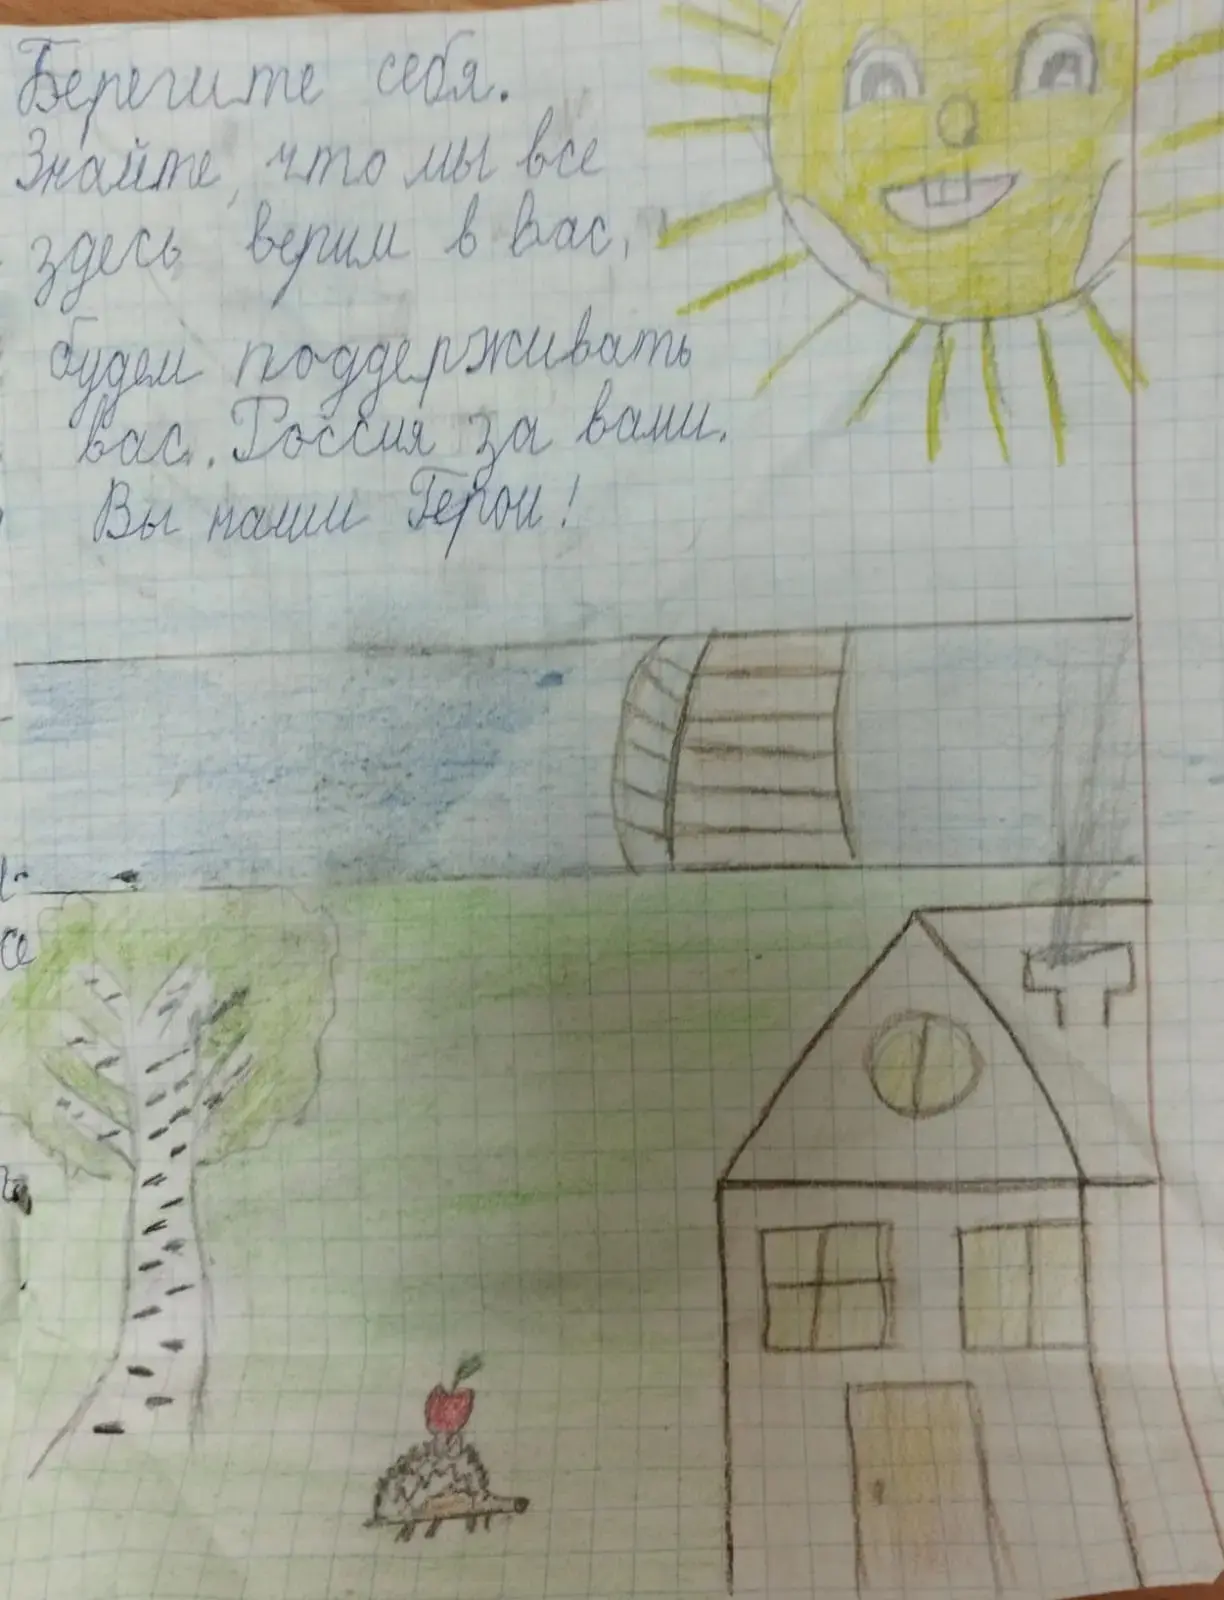 Берегите себя.
Знайте, что мы все
здесь верим в вас,
будем поддерживать
вас. Россия за вами.
Вы наши Герои!